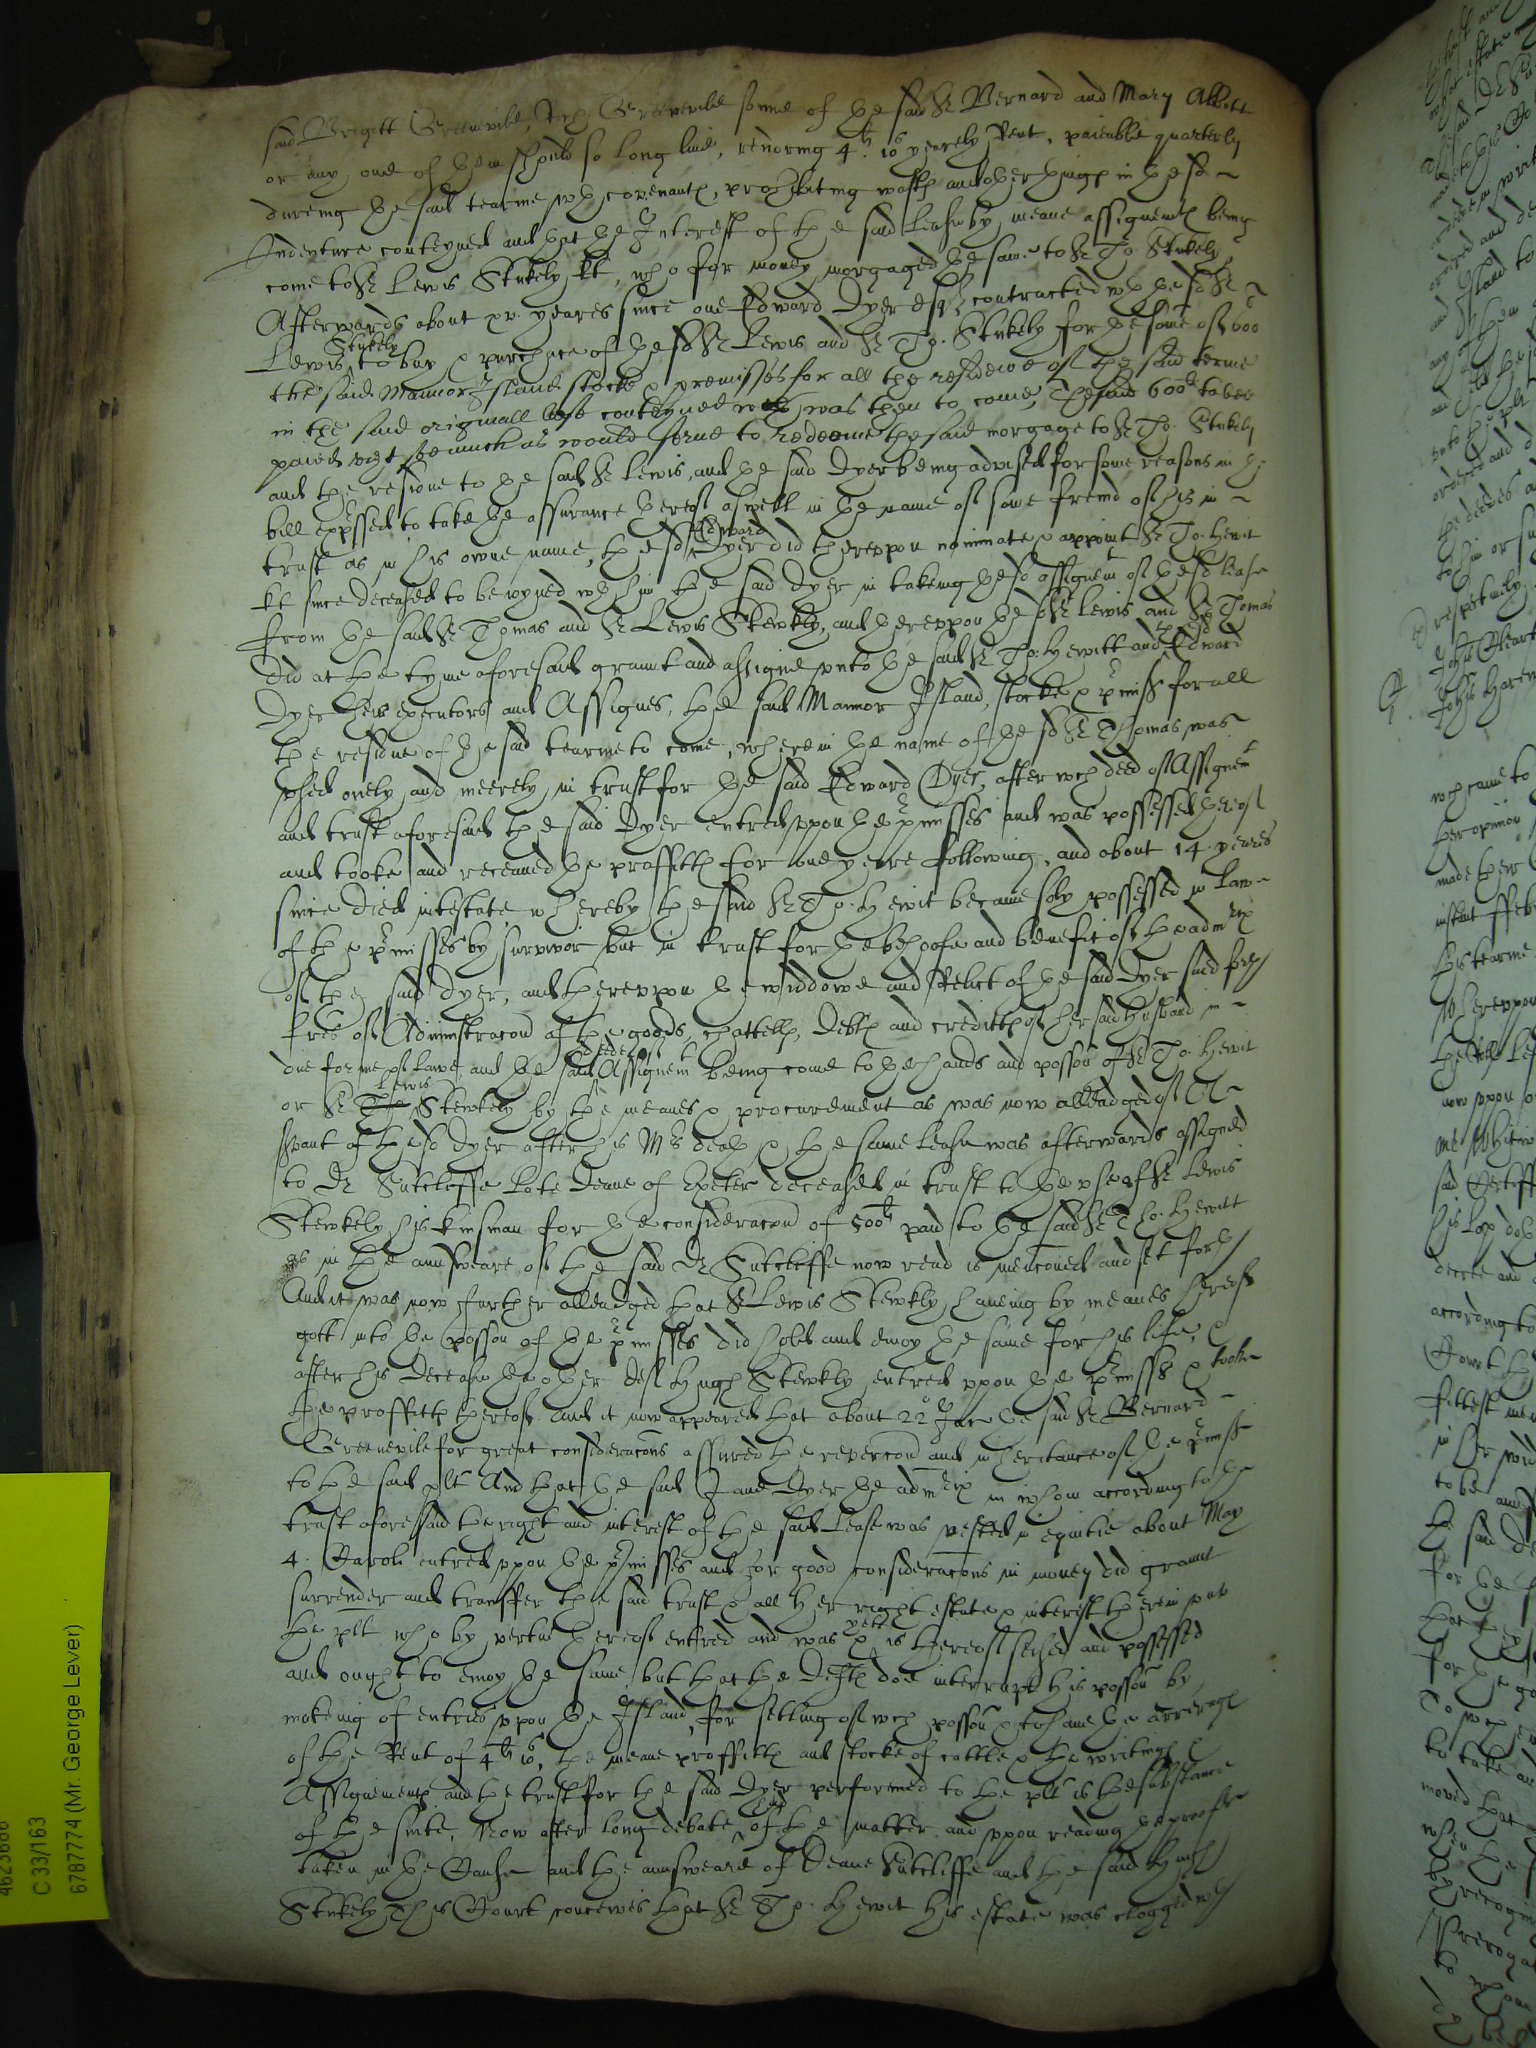 said Brigitt Greenevile, Greenevile sonne of the said Sr Bernard and Mary Abbott
or any one of them should so long live, rendring 4li 10s yearely Rent, paieable quarterly
dureing the said tearme wth covenantes, prohibiting wast and other thinges in the sd
Indenture conteyned and that the Interest of the said lease by meane assignemtes being
come to Sr Lewis Stukely kt, who for money morgaged the same to Sr Tho. Stukely
Afterwards about xv yeares since one Edward Dyer esqr contracted wth the sd Sr
Lewis Stukely to buy & purchace of the sd Sr Lewis and Sr Tho. Stukely for the some of 600li
the said Mannor Island stocke & premisses for all the residewe of the said terme
in the said originall lease conteyned wch was then to come, The said 600li to bee
paied vizt soe much as would serve to redeeme the said morgage to Sr Tho: Stukely
and the residue to the said Sr Lewis, and the said Dyer being advised for some reasons in the
bill expressed to take the assurance thereof aswell in the name of some freind of his in
trust as in his owne name, the sd Edward Dyer did thereuppon nominate & appoint Sr Tho: Hewit
kt since deceased to be ioyned wth him the said Dyer in takeing the sd assignemt of the sd lease
from the said Sr Thomas and Sr Lewis Stewkly, and thereuppon the sd Sr Lewis and Sr Thomas
did at the tyme aforesaid graunt and assigne vnto the said Sr Tho: Hewitt and the sd Edward
Dyer their executors and Assignes, the said Mannor Island, stocke & pmiss for all
the residue of the said tearme to come, wherein the name of the sd Sr Thomas was
vsed onely and meerely in trust for the said Edward Dyer, after wch deed of Assignemt
and trust aforesaid the said Dyer entred vppon the pmisses and was possessed thereof
and tooke and received the proffittes for one yeare following, and about 14 yeares
since died intestate whereby the said Sr Tho. Hewit became soly possessed in law
of the pmisses by survivor but in trust for the behoofe and benefit of the admrix
of the said Dyer, and thereuppon the widdowe and Relict of the said Dyer
lres of Administracon of the goods, chattells, debtes and credittes of her said husband in
due forme of lawe, and the said deede of Assignemt being come to the hands and posson of Sr Tho: Hewit
or Sr Lewis Stewkely by the meanes & procurement as was now alleadged of A
servant of the sd Dyer after his Mrs death & the same lease was afterwards assigned
to Dr Sutcliffe late Deane of Exeter deceased in trust to the vse of Sr Lewis
Stewkely his kinsman for the consideracon of 500li paid to the said Sr Tho: Hewitt
as in the aunsweare of the said Dr Sutcliffe now read is mencioned and set forth
And it was now further alleadged that Sr Lewis Stewkly haveing by meanes thereof
gott into the posson of the pmisses did hold and enioy the same for his life, &
after his decease the other deft Hugh Stewkly entred vppon the pmiss & tooke
the proffittes thereof. And it now appeared that about 22o Jac the said Sr Bernard
Greenevile for great consideracons assured the revercon and inheritance of the pmiss
to the said plt And that the said Jane Dyer the admrix in whom according to the
trust aforesaid the right and interest of the said Lease was vested in equitie about May
4. Caroli entred vppon the pmisses and for good consideracons in money did graunt
surrender and transfer the said trust & all her right estate & interest therein vnto
the plt who by vertue thereof entred and was & yett is thereof seised and possessed
and ought to enioy the same, but that the deftes doe interrupt his posson by
makeing of entries vppon the Island, for setling of wch posson & to have the arrerages
of the Rent of 4li 10s, the meane proffittes and stocke of cattle & the writings &
Assignementes and the trust for the said Dyer performed to the plt is the substance
of the suite, Now after long debate of the matter and vppon reading the proofes
taken in the Cause and the aunsweare of Deane Sutcliffe and the said Hugh
Stukely This Court conceives that Sr Tho. Hewit his estate was clogged wth
C 33/163
6787774 (Mr. George Lever)